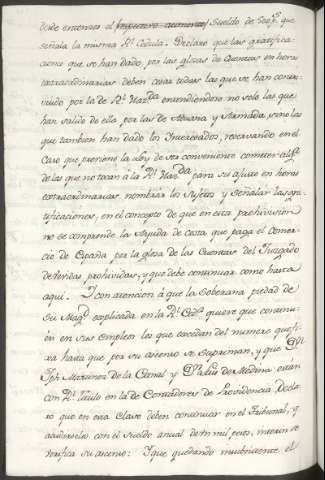 desde entonces el sueldo de que
señala la misma Rl. Cedula. Declaro que las gratifica-
ciones que se han dado por las glosas de Cuentas en horas
extraordinarias deben cesar todas las que se han contri-
buido por la de Rl. Hazda. entendiendose no solo las que
han salido de ella por las de Aduana y Armada, sino las
que tambien han dado los Interesados, reservando en el
Caso que previene la Ley de ser conveniente cometer
de las que tocan á la Rl. Hazda. para su ajuste en horas
extraordinarias nombrar los Sujetos y señalar las gra-
tificaciones, en el concepto de que en esta prohivision
no se comprende la Ayuda de costa que paga el Comer-
cio de España por la glosa de las Cuentas del Juzgado
de Vevidas prohividas, y que debe continuar como hasta
aqui. Y con atencion á que la Soberana piedad de
Su Magd. explicada en la Rl. Ceda. quiere que continu-
en en sus empleos los que excedan del numero que fi-
xa hasta que por su asenso se supriman, y que Dn.
Jph. Martinez de la Canal y Dn. de Medina estan
con Rl. Titulo en la de Contadores de Providencia, Decla-
ro que en esta Clase deben continuar en el Tribunal, y
acudirseles con el sueldo anual de mil pesos, interin se
verifica su ascenso: Y que quedando insubsistente el